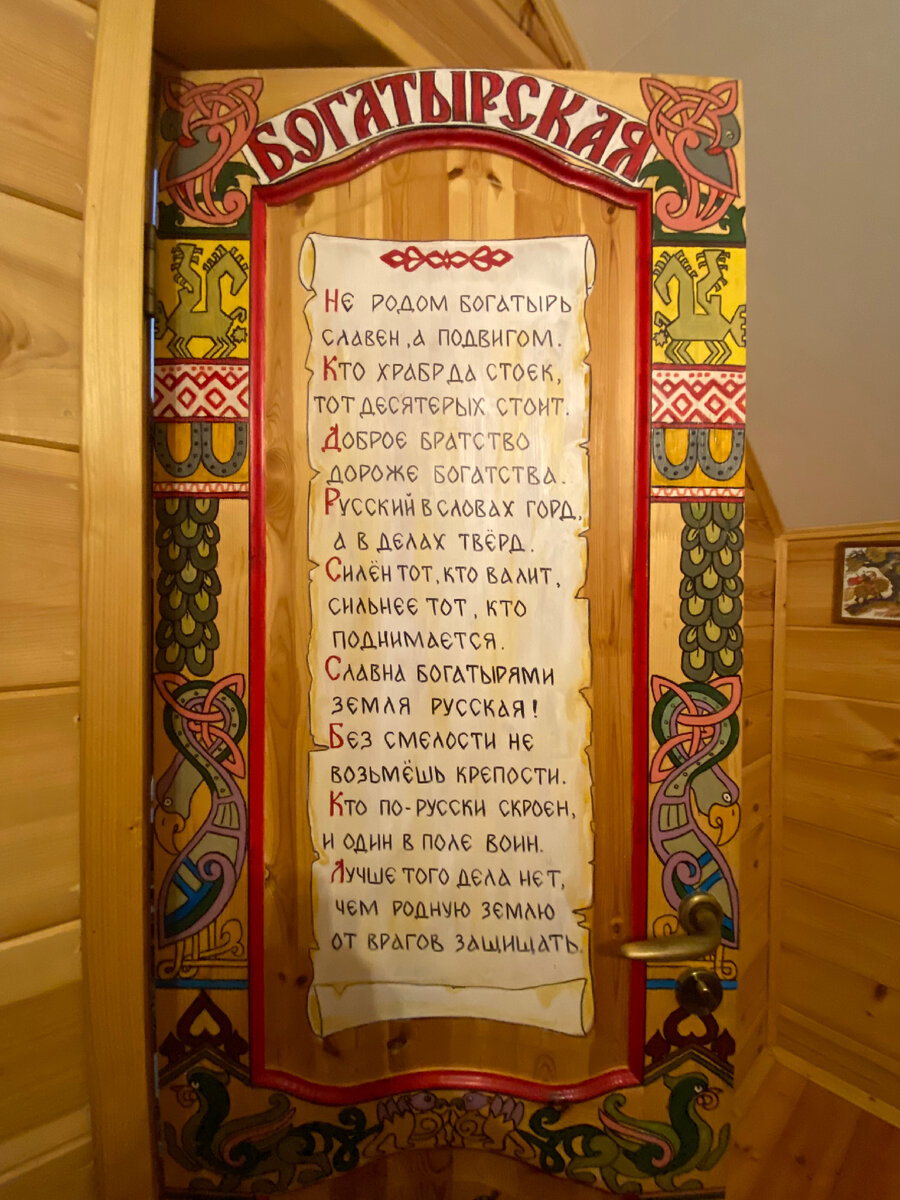 БОГАТЫРСКАЯ
Не родом богатырь
славен, а подвигом.
Кто храбр да стоек,
тот десятерых стоит.
Доброе братство
дороже богатства.
Русский в словах горд,
а в делах твёрд.
Силён тот, кто валит,
сильнее тот, кто
поднимается.
Славна богатырями
земля русская!
Без смелости не
возьмёшь крепости.
Кто по-русски скроен,
и один в поле воин.
Лучше того дела нет,
чем родную землю
от врагов защищать.